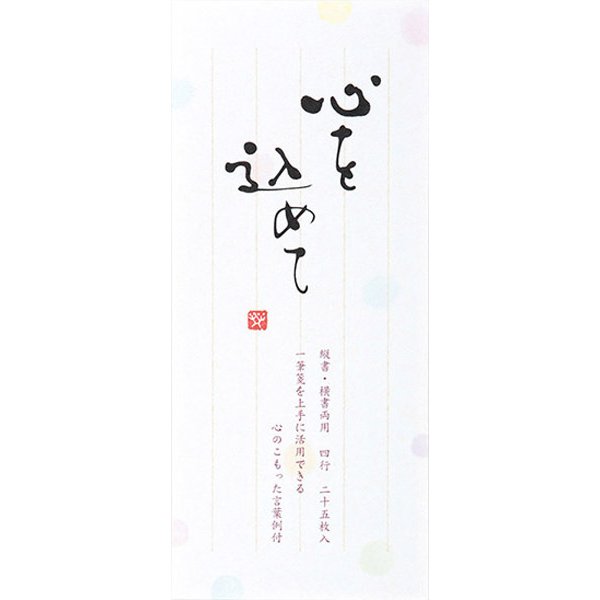 心を
込めて
縦書・横書両用 四行 二十五枚入
一筆箋を上手に活用できる
心のこもった言葉例付